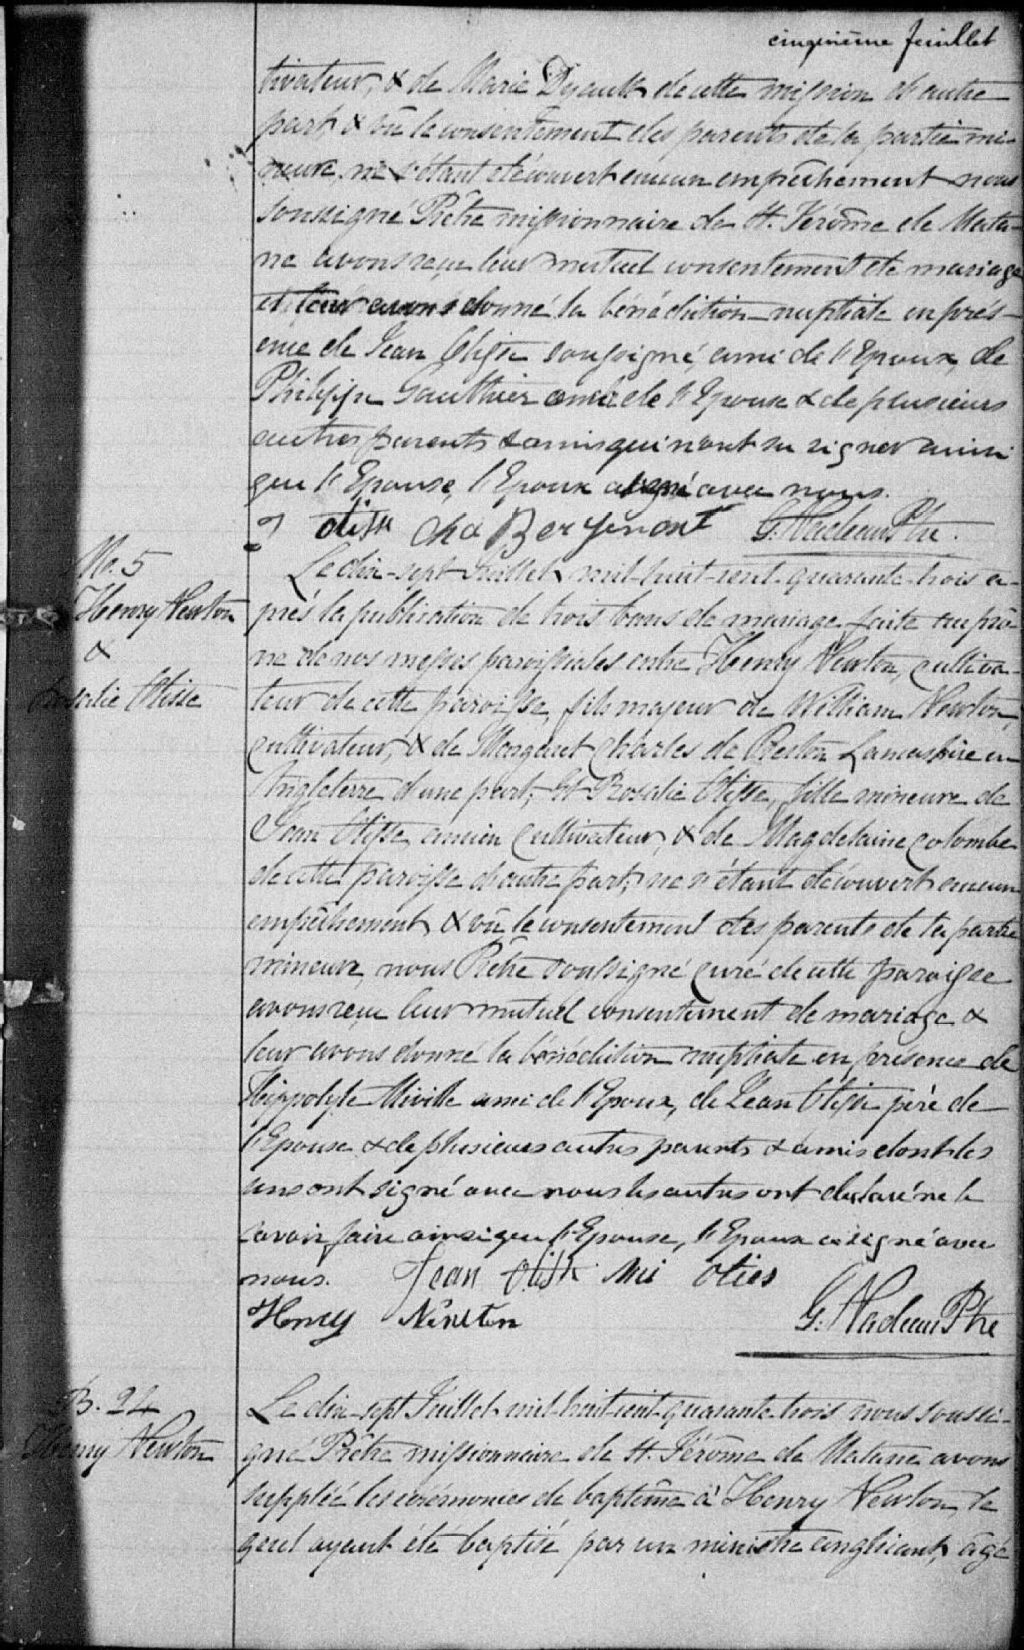 cinquième feuillet
tivateur, & de Marie Dysault de cette mission d'autre
part, & vû le consentement des parents de la partie mi-
neure, ne s'étant découvert aucun empêchement nous
soussigné Prêtre missionnaire de St. Jérôme de Mata-
ne avons reçu leur mutuel consentement de mariage
et leur avons donné la bénédiction nuptiale en prés-
ence de Jean Otiss soussigné, ami de l'Epoux, de
Philippe Gauthier ami de l'Epoux & de plusieurs
autres parents & amis qui n'ont su signer ainsi
que l'Epouse, l'Epoux a signé avec nous.
J otiss cha Ber G. Nadeau Ptre.
No. 5
Henry Newton
&
Rosalie Otisse
Le dix-sept Juillet mil-huit-cent-quarante-trois a-
près la publication de trois bans de mariage faite au prô-
ne de nos messes paroissiales entre Henry Newton, cultiva-
teur de cette paroisse, fils majeur de William Newton,
cultivateur, & de Margaret Charles de Preston Lancashire en
Angleterre d'une part; Et Rosalie Otisse, fille mineure de
Jean Otisse, ancien cultivateur, & de Magdelaine Colombe
de cette paroisse d'autre part; ne s'étant découvert aucun
empêchement & vû le consentement des parents de la partie
mineure, nous Prêtre soussigné curé de cette paroisse
avons reçu leur mutuel consentement de mariage &
leur avons donné la bénédiction nuptiale en présence de
Hippolyte Miville ami de l'Epoux, de Jean Otiss père de
l'Epouse & de plusieurs autres parents & amis dont les
uns ont signé avec nous les autres ont déclaré ne le
savoir faire ainsi que l'Epouse, l'Epoux a signé avec
nous. Jean otiss Mi oties
Henry Newton G. Nadeau Ptre
B. 24
Henry Newton
Le dix-sept Juillet mil-huit-cent-quarante-trois nous soussi-
gné Prêtre missionnaire de St. Jérôme de Matane avons
supplié les cérémonies de baptême à Henry Newton, le
quel ayant été baptisé par un ministre anglicant, âgé